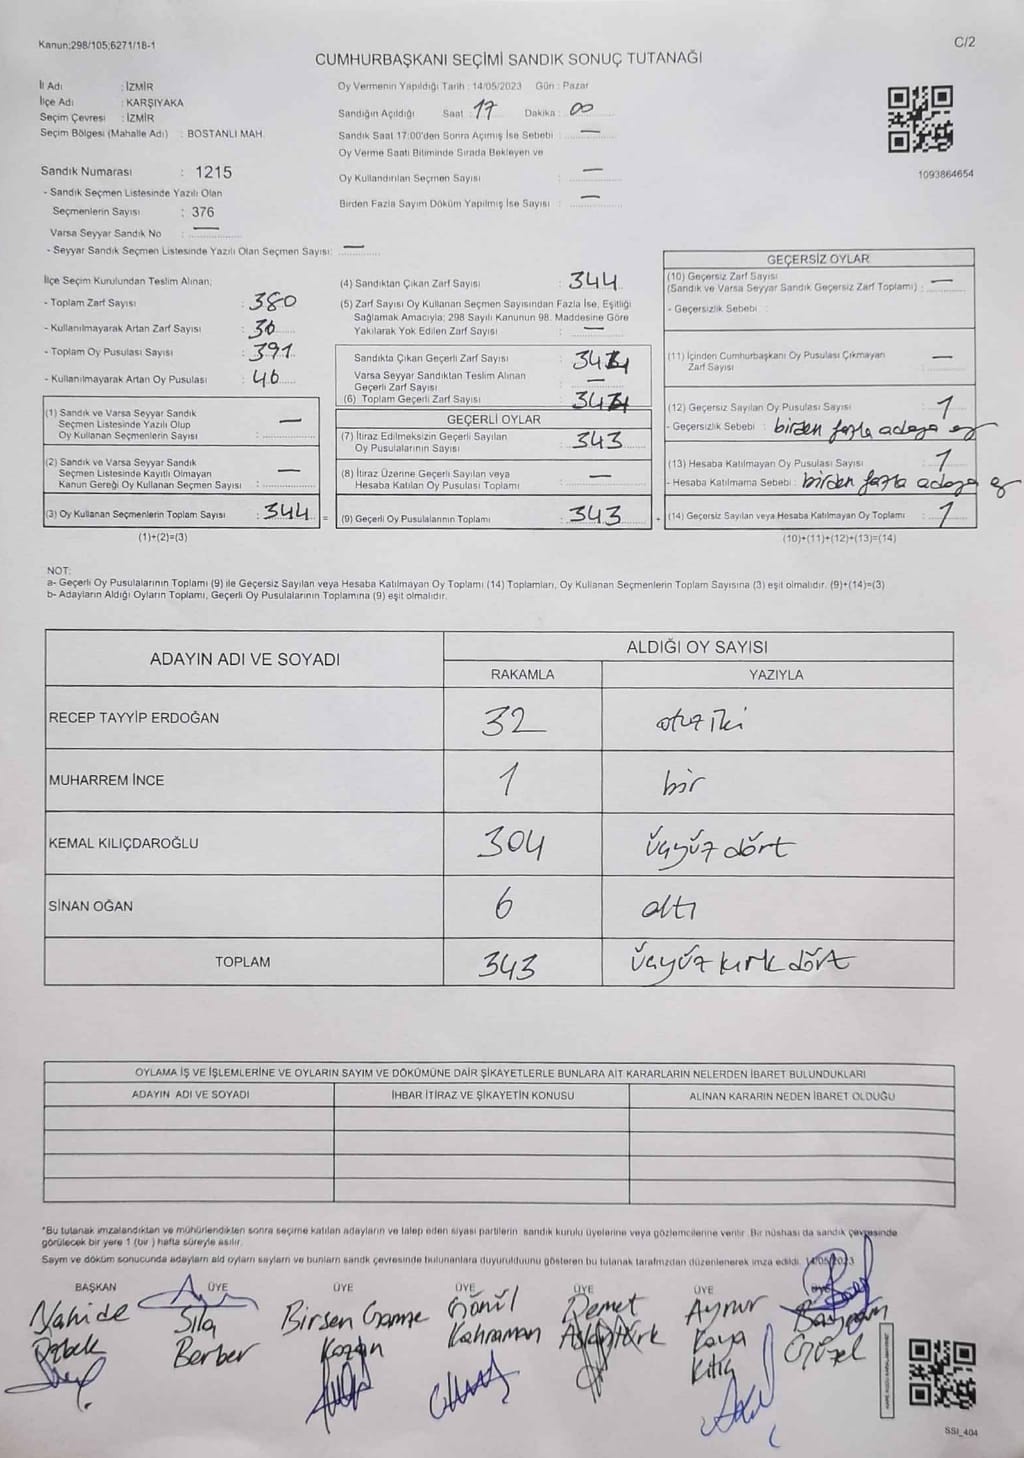 Kanun;298/105;6271/18-1
C/2
CUMHURBAŞKANI SEÇİMİ SANDIK SONUÇ TUTANAĞI
İl Adı : İZMİR
İlçe Adı : KARŞIYAKA
Seçim Çevresi : İZMİR
Seçim Bölgesi (Mahalle Adı) : BOSTANLI MAH.
Sandık Numarası : 1215
- Sandık Seçmen Listesinde Yazılı Olan
Seçmenlerin Sayısı : 376
Varsa Seyyar Sandık No : —
- Seyyar Sandık Seçmen Listesinde Yazılı Olan Seçmen Sayısı: —
Oy Vermenin Yapıldığı Tarih : 14/05/2023 Gün : Pazar
Sandığın Açıldığı Saat : 17 Dakika : 00
Sandık Saat 17:00'den Sonra Açımış İse Sebebi : —
Oy Verme Saati Bitiminde Sırada Bekleyen ve
Oy Kullandırılan Seçmen Sayısı : —
Birden Fazla Sayım Döküm Yapılmış İse Sayısı : —
1093864654
İlçe Seçim Kurulundan Teslim Alınan;
- Toplam Zarf Sayısı : 380
- Kullanılmayarak Artan Zarf Sayısı : 36
- Toplam Oy Pusulası Sayısı : 391
- Kullanılmayarak Artan Oy Pusulası : 46
(1) Sandık ve Varsa Seyyar Sandık
Seçmen Listesinde Yazılı Olup
Oy Kullanan Seçmenlerin Sayısı : —
(2) Sandık ve Varsa Seyyar Sandık
Seçmen Listesinde Kayıtlı Olmayan
Kanun Gereği Oy Kullanan Seçmen Sayısı : —
(3) Oy Kullanan Seçmenlerin Toplam Sayısı : 344 =
(1)+(2)=(3)
(4) Sandıktan Çıkan Zarf Sayısı : 344
(5) Zarf Sayısı Oy Kullanan Seçmen Sayısından Fazla İse, Eşitliği
Sağlamak Amacıyla; 298 Sayılı Kanunun 98. Maddesine Göre
Yakılarak Yok Edilen Zarf Sayısı : —
Sandıkta Çıkan Geçerli Zarf Sayısı : 344
Varsa Seyyar Sandıktan Teslim Alınan
Geçerli Zarf Sayısı : —
(6) Toplam Geçerli Zarf Sayısı : 344
GEÇERLİ OYLAR
(7) İtiraz Edilmeksizin Geçerli Sayılan
Oy Pusulalarının Sayısı : 343
(8) İtiraz Üzerine Geçerli Sayılan veya
Hesaba Katılan Oy Pusulası Toplamı : —
(9) Geçerli Oy Pusulalarının Toplamı : 343 +
GEÇERSİZ OYLAR
(10) Geçersiz Zarf Sayısı
(Sandık ve Varsa Seyyar Sandık Geçersiz Zarf Toplamı) : —
- Geçersizlik Sebebi :
(11) İçinden Cumhurbaşkanı Oy Pusulası Çıkmayan
Zarf Sayısı : —
(12) Geçersiz Sayılan Oy Pusulası Sayısı : 1
- Geçersizlik Sebebi : birden fazla adaya
(13) Hesaba Katılmayan Oy Pusulası Sayısı : 1
- Hesaba Katılmama Sebebi : birden fazla adaya
(14) Geçersiz Sayılan veya Hesaba Katılmayan Oy Toplamı : 1
(10)+(11)+(12)+(13)=(14)
NOT:
a- Geçerli Oy Pusulalarının Toplamı (9) ile Geçersiz Sayılan veya Hesaba Katılmayan Oy Toplamı (14) Toplamları, Oy Kullanan Seçmenlerin Toplam Sayısına (3) eşit olmalıdır. (9)+(14)=(3)
b- Adayların Aldığı Oyların Toplamı, Geçerli Oy Pusulalarının Toplamına (9) eşit olmalıdır.
ADAYIN ADI VE SOYADI
ALDIĞI OY SAYISI
RAKAMLA YAZIYLA
RECEP TAYYİP ERDOĞAN 32 otuz iki
MUHARREM İNCE 1 bir
KEMAL KILIÇDAROĞLU 304 üçyüz dört
SİNAN OĞAN 6 altı
TOPLAM 343 üçyüz kırk dört
OYLAMA İŞ VE İŞLEMLERİNE VE OYLARIN SAYIM VE DÖKÜMÜNE DAİR ŞİKAYETLERLE BUNLARA AİT KARARLARIN NELERDEN İBARET BULUNDUKLARI
ADAYIN ADI VE SOYADI İHBAR İTİRAZ VE ŞİKAYETİN KONUSU ALINAN KARARIN NEDEN İBARET OLDUĞU
*Bu tutanak imzalandıktan ve mühürlendikten sonra seçime katılan adayların ve talep eden siyasi partilerin sandık kurulu üyelerine veya gözlemcilerine verilir. Bir nüshası da sandık çevresinde
görülecek bir yere 1 (bir) hafta süreyle asılır.
Sayım ve döküm sonucunda adayların ald oyların sayların ve bunların sandk çevresinde bulunanlara duyurulduunu gösteren bu tutanak tarafmzdan düzenlenerek imza edildi. 14/05/2023
BAŞKAN ÜYE ÜYE ÜYE ÜYE ÜYE
Nahide Sıla Birsen Gamze Gönül Demet Aynur Bayram
Özbek Berber Kozan Kahraman Aslantürk Kaya Güzel
Kılıç
SSI_404